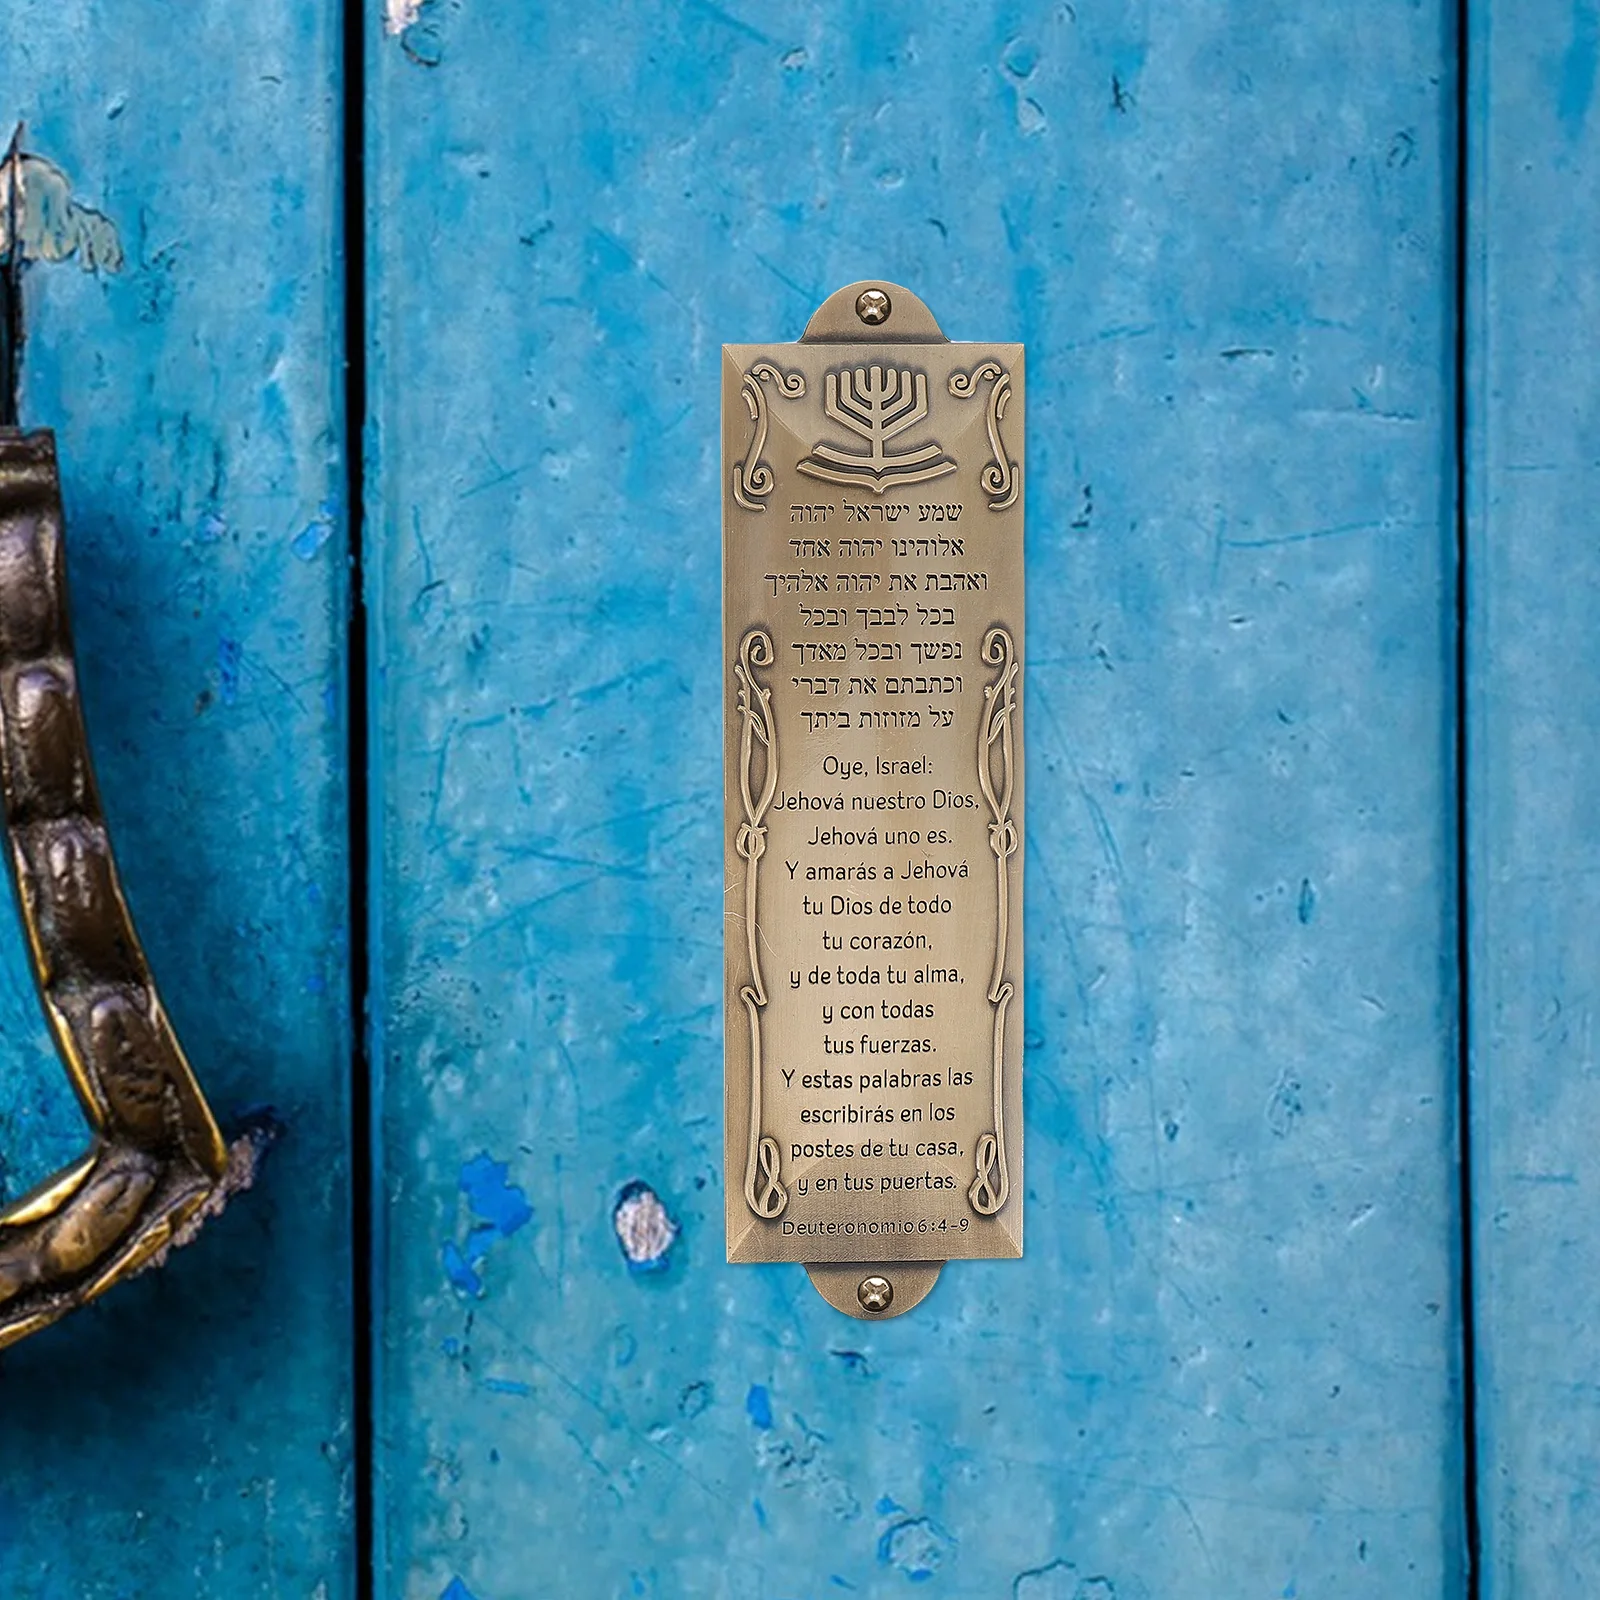 שמע ישראל יהוה
אלוהינו יהוה אחד
ואהבת את יהוה אלהיך
בכל לבבך ובכל
נפשך ובכל מאדך
וכתבתם את דברי
על מזוזות ביתך
Oye, Israel:
Jehová nuestro Dios,
Jehová uno es.
Y amarás a Jehová
tu Dios de todo
tu corazón,
y de toda tu alma,
y con todas
tus fuerzas.
Y estas palabras las
escribirás en los
postes de tu casa,
y en tus puertas.
Deuteronomio 6:4-9